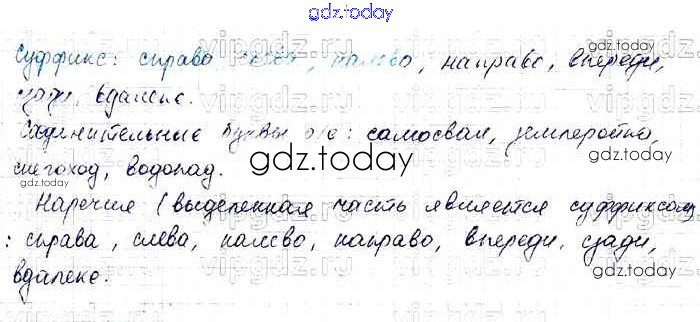 gdz.today
Суффикс: справо налево, направо, впереди,
вдалеке.
Соединительные буквы о/е: самосвал, землеройка,
снегоход, водопад.
gdz.today
Наречия (выделенная часть является суффиксом)
: справа, слева, налево, направо, впереди, сзади,
вдалеке.